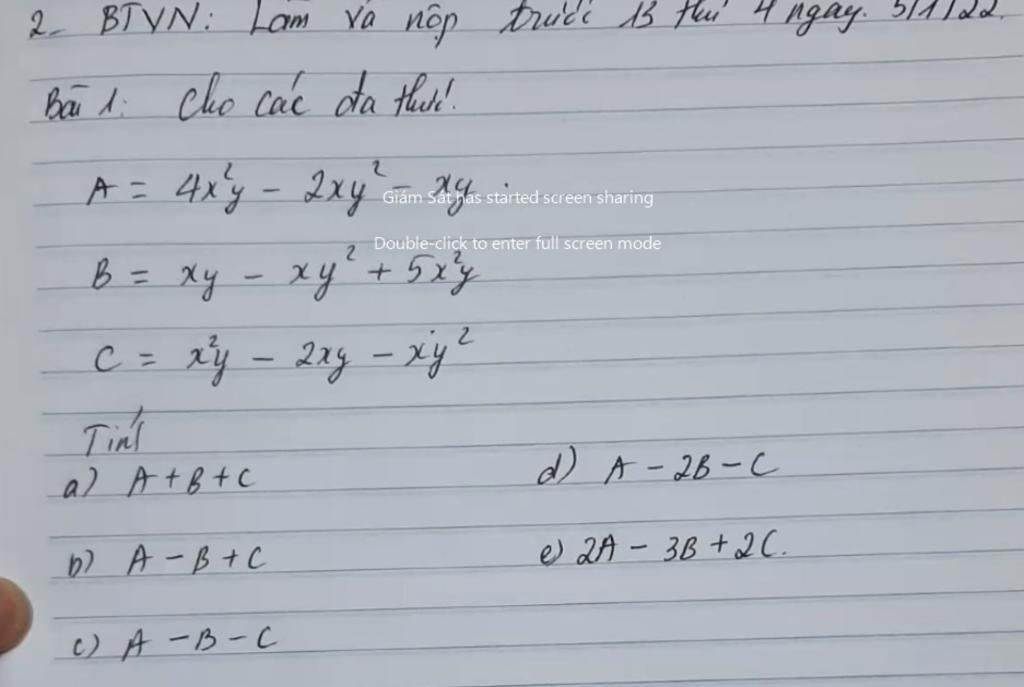 2- BTVN: Làm và nộp trước 13 thứ 4 ngày. 5/1/22.
Bài 1: Cho các đa thức.
A = 4x²y - 2xy² - xy.
Giám Sát has started screen sharing
Double-click to enter full screen mode
B = xy - xy² + 5x²y
C = x²y - 2xy - xy²
Tính
a) A + B + C
d) A - 2B - C
b) A - B + C
e) 2A - 3B + 2C.
c) A - B - C